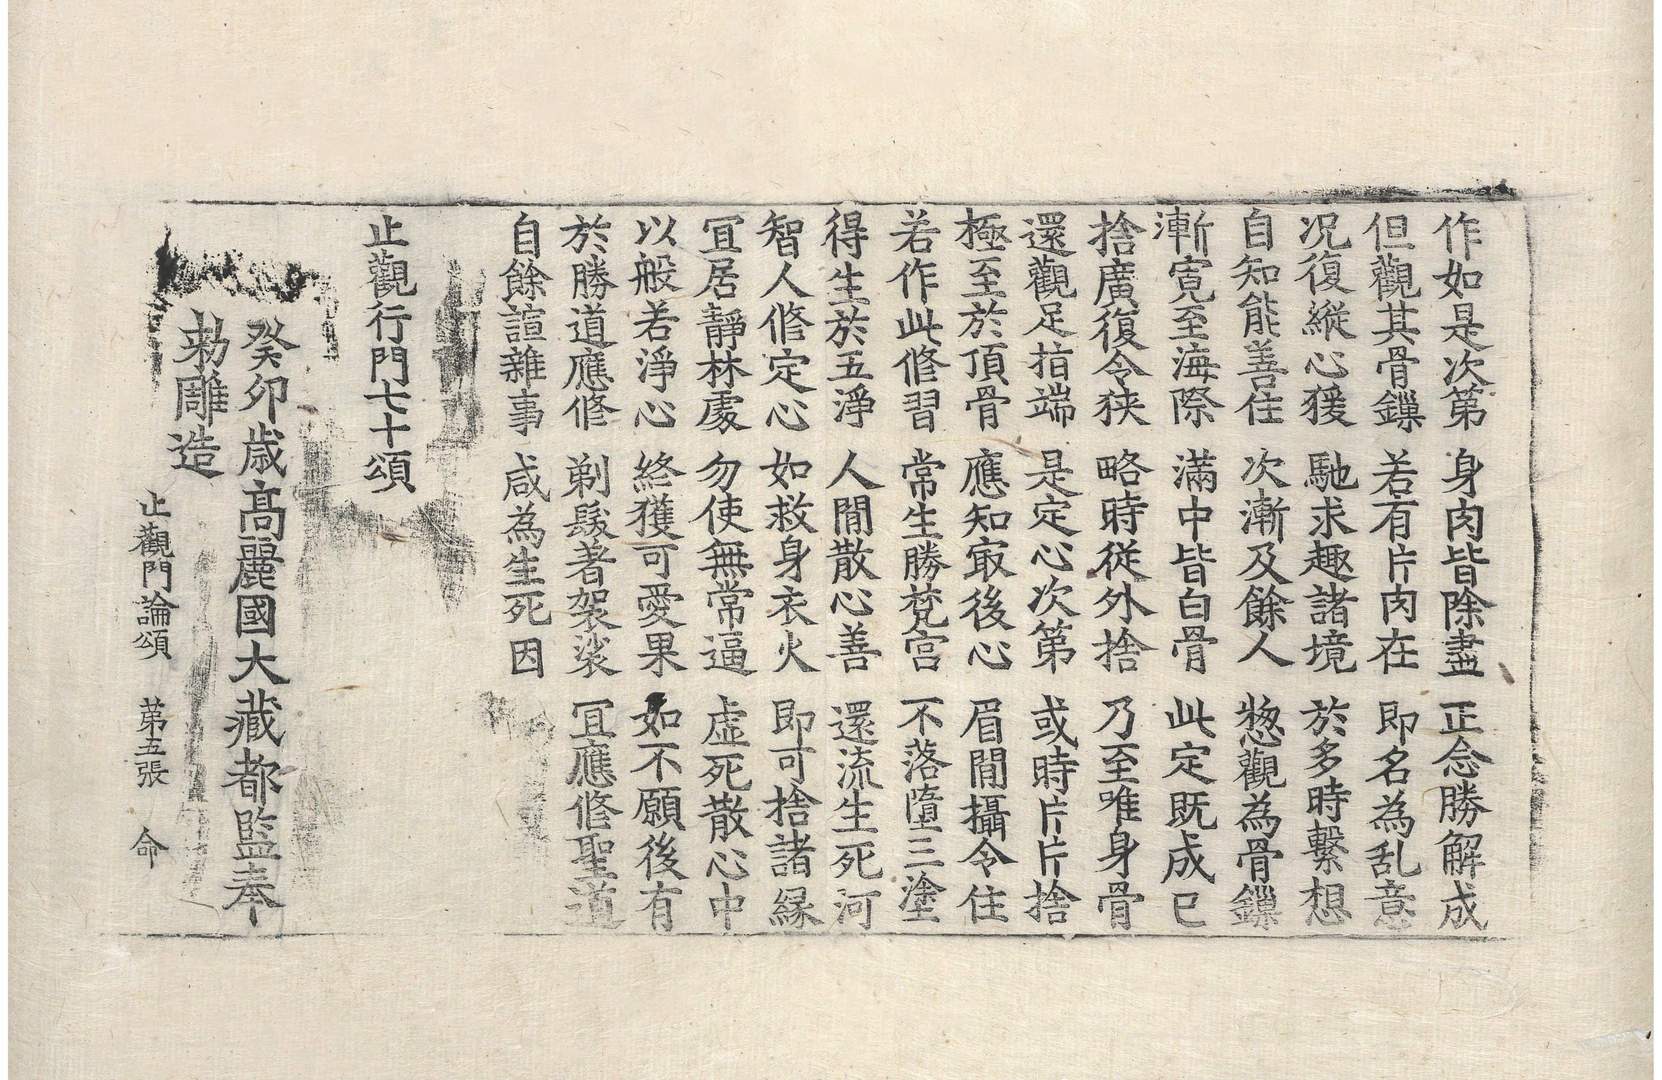 作如是次第　身肉皆除盡　正念勝解成
但觀其骨鏁　若有片肉在　即名為乱意
况復縱心猨　馳求趣諸境　於多時繫想
自知能善住　次漸及餘人　惣觀為骨鏁
漸寛至海際　滿中皆白骨　此定既成已
捨廣復令狹　略時從外捨　乃至唯身骨
還觀足指端　是定心次第　或時片片捨
極至於頂骨　應知㝡後心　眉間攝令住
若作此修習　常生勝梵宮　不落墮三塗
得生於五淨　人間散心善　還流生死河
智人修定心　如救身衣火　即可捨諸縁
宜居靜林處　勿使無常逼　虛死散心中
以般若淨心　終獲可愛果　如不願後有
於勝道應修　剃髮著袈裟　宜應修聖道
自餘諠雜事　咸為生死因
止觀行門七十頌
癸卯歲高麗國大藏都監奉
勑雕造
止觀門論頌　第五張　命